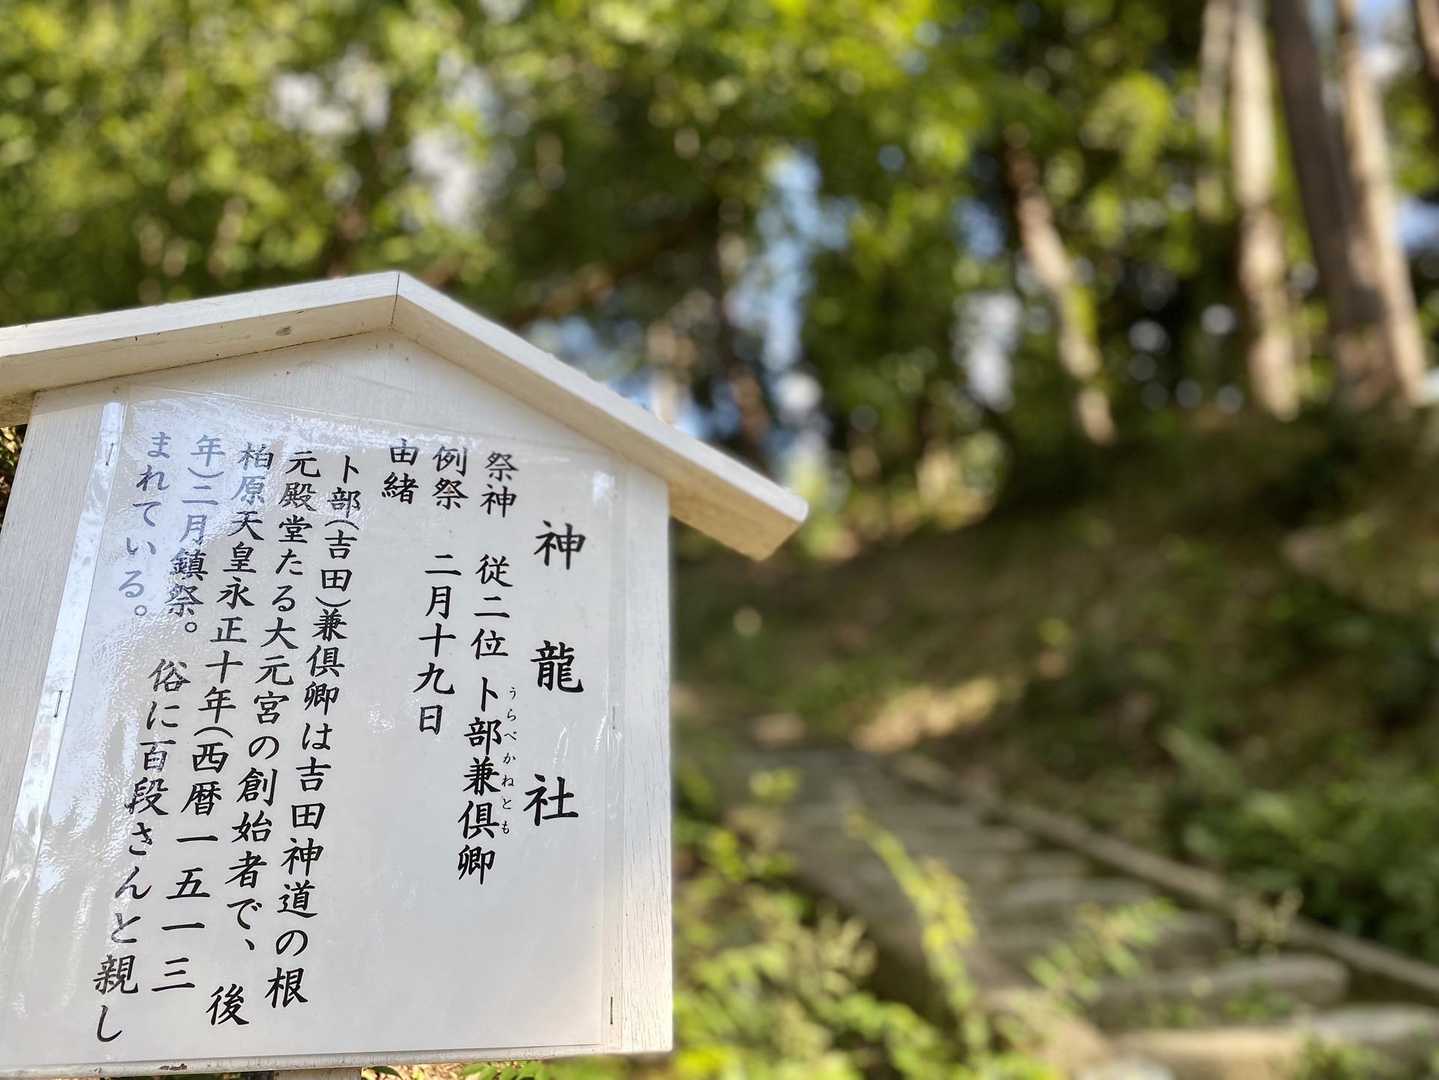 神龍社
祭神 従二位 卜部兼倶卿
うらべかねとも
例祭 二月十九日
由緒
卜部(吉田)兼倶卿は吉田神道の根
元殿堂たる大元宮の創始者で、後
柏原天皇永正十年(西暦一五一三
年)二月鎮祭。俗に百段さんと親し
まれている。